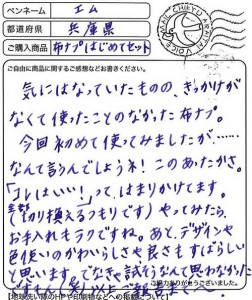 ペンネーム エム
都道府県 兵庫県
ご購入商品 布ナプはじめてセット
MAIL CHIKYU ARAITAI VOICE
▼ご自由に商品に関するご感想などお書きください。
気にはなっていたものの、きっかけが
なくて使ったことのなかった布ナプ。
今回初めて使ってみましたが……
なんて言うんでしょうネ！このあったかさ。
「コレはいい！」って、はまりかけてます。
(切り換えるつもりです) やってみたら、
お手入れもラクですね。あと、デザインや
色使いのかわいらしさや良さもすばらしい
と思います。
ご協力ありがとうございました。
【地球洗い隊のHPや印刷物などへの掲載について】